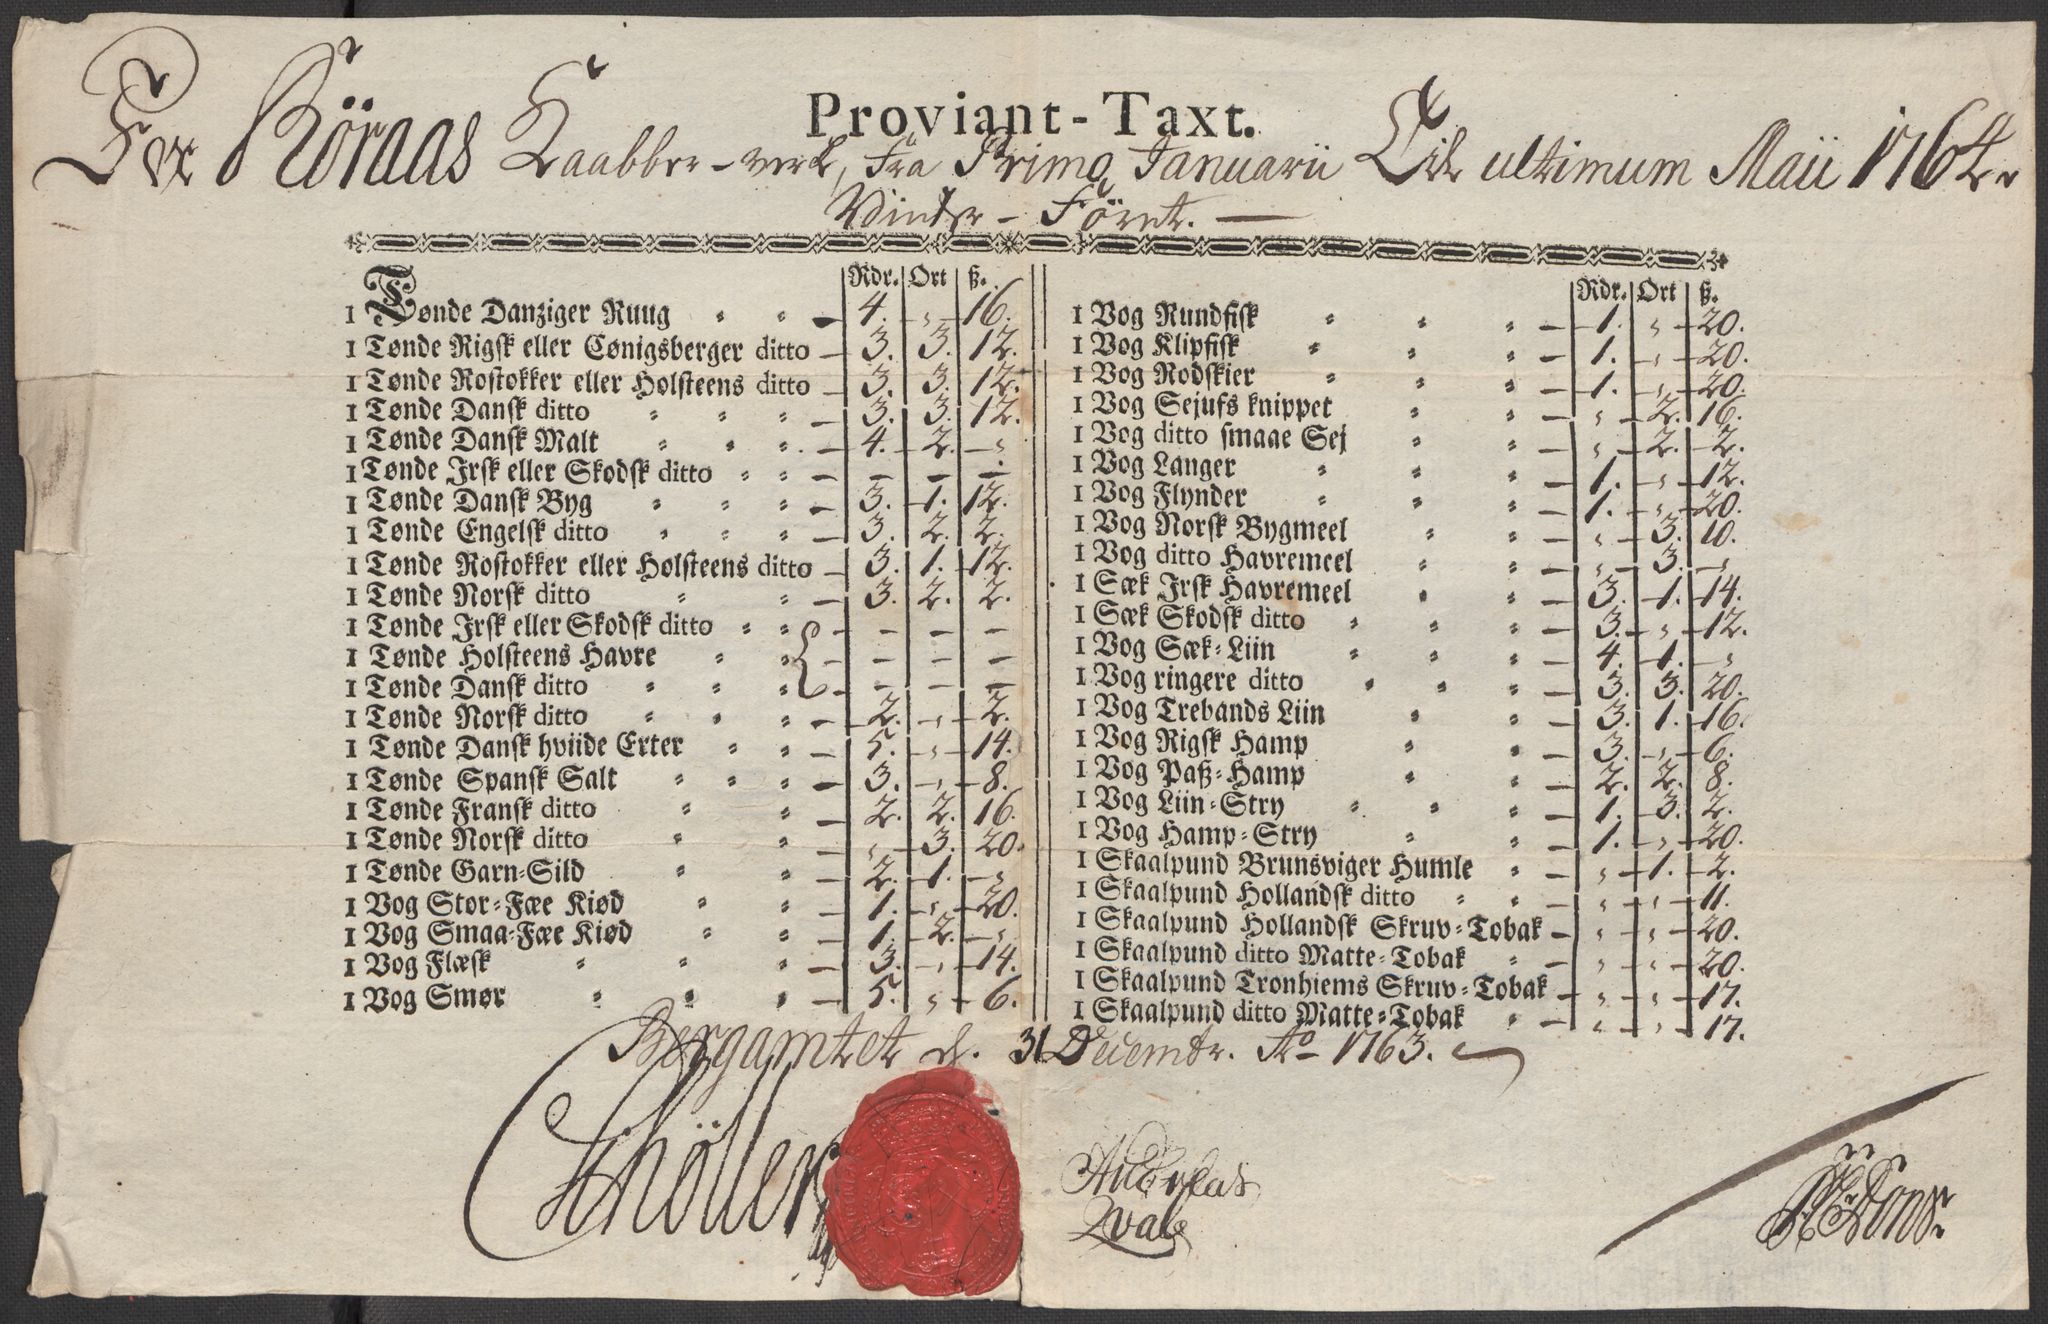 Proviant-Taxt.
For Röraas Kaabber-verk, fra Primo Januarii Til ultimum Maii 1764.
Vinter-Föret.
Rdr. Ort ß.
1 Tønde Danziger Ruug 4. „ 16.
1 Tønde Rigsk eller Cønigsberger ditto 3. 3. 12.
1 Tønde Rostokker eller Holsteens ditto 3. 3. 12.
1 Tønde Dansk ditto 3. 3. 12.
1 Tønde Dansk Malt 4. 2. „
1 Tønde Irsk eller Skodsk ditto — — —
1 Tønde Dansk Byg 3. 1. 12.
1 Tønde Engelsk ditto 3. 2. 2.
1 Tønde Rostokker eller Holsteens ditto 3. 1. 12.
1 Tønde Norsk ditto 3. 2. 2.
1 Tønde Irsk eller Skodsk ditto — — —
1 Tønde Holsteens Havre — — —
1 Tønde Dansk ditto — — —
1 Tønde Norsk ditto 2. „ 2.
1 Tønde Dansk hviide Erter 5. „ 14.
1 Tønde Spansk Salt 3. „ 8.
1 Tønde Fransk ditto 2. 2. 16.
1 Tønde Norsk ditto „ 3. 20.
1 Tønde Garn-Sild 2. 1. „
1 Vog Stor-Fæe Kiød 1. „ 20.
1 Vog Smaa-Fæe Kiød 1. 2. „
1 Vog Flæsk 3. „ 14.
1 Vog Smør 5. „ 6.
Rdr. Ort ß.
1 Vog Rundfisk 1. „ 20.
1 Vog Klipfisk 1. „ 20.
1 Vog Rodskier 1. „ 20.
1 Vog Sejufs knippet „ 2. 16.
1 Vog ditto smaae Sej „ 2. 2.
1 Vog Langer 1. „ 12.
1 Vog Flynder 1. „ 20.
1 Vog Norsk Bygmeel „ 3. 10.
1 Vog ditto Havremeel „ 3. „
1 Sæk Irsk Havremeel 3. 1. 14.
1 Sæk Skodsk ditto 3. „ 12.
1 Vog Sæk-Liin 4. 1. „
1 Vog ringere ditto 3. 3. 20.
1 Vog Trebands Liin 3. 1. 16.
1 Vog Rigsk Hamp 3. „ 6.
1 Vog Paß-Hamp 2. 2. 8.
1 Vog Liin-Stry 1. 3. 2.
1 Vog Hamp-Stry 1. „ 20.
1 Skaalpund Brunsviger Humle „ 1. 2.
1 Skaalpund Hollandsk ditto „ „ 11.
1 Skaalpund Hollandsk Skruv-Tobak „ „ 20.
1 Skaalpund ditto Matte-Tobak „ „ 20.
1 Skaalpund Tronhiems Skruv-Tobak „ „ 17.
1 Skaalpund ditto Matte-Tobak „ „ 17.
Bergamtet d. 31 Decembr. Ao 1763.
Schöller
Andreas
Qvale